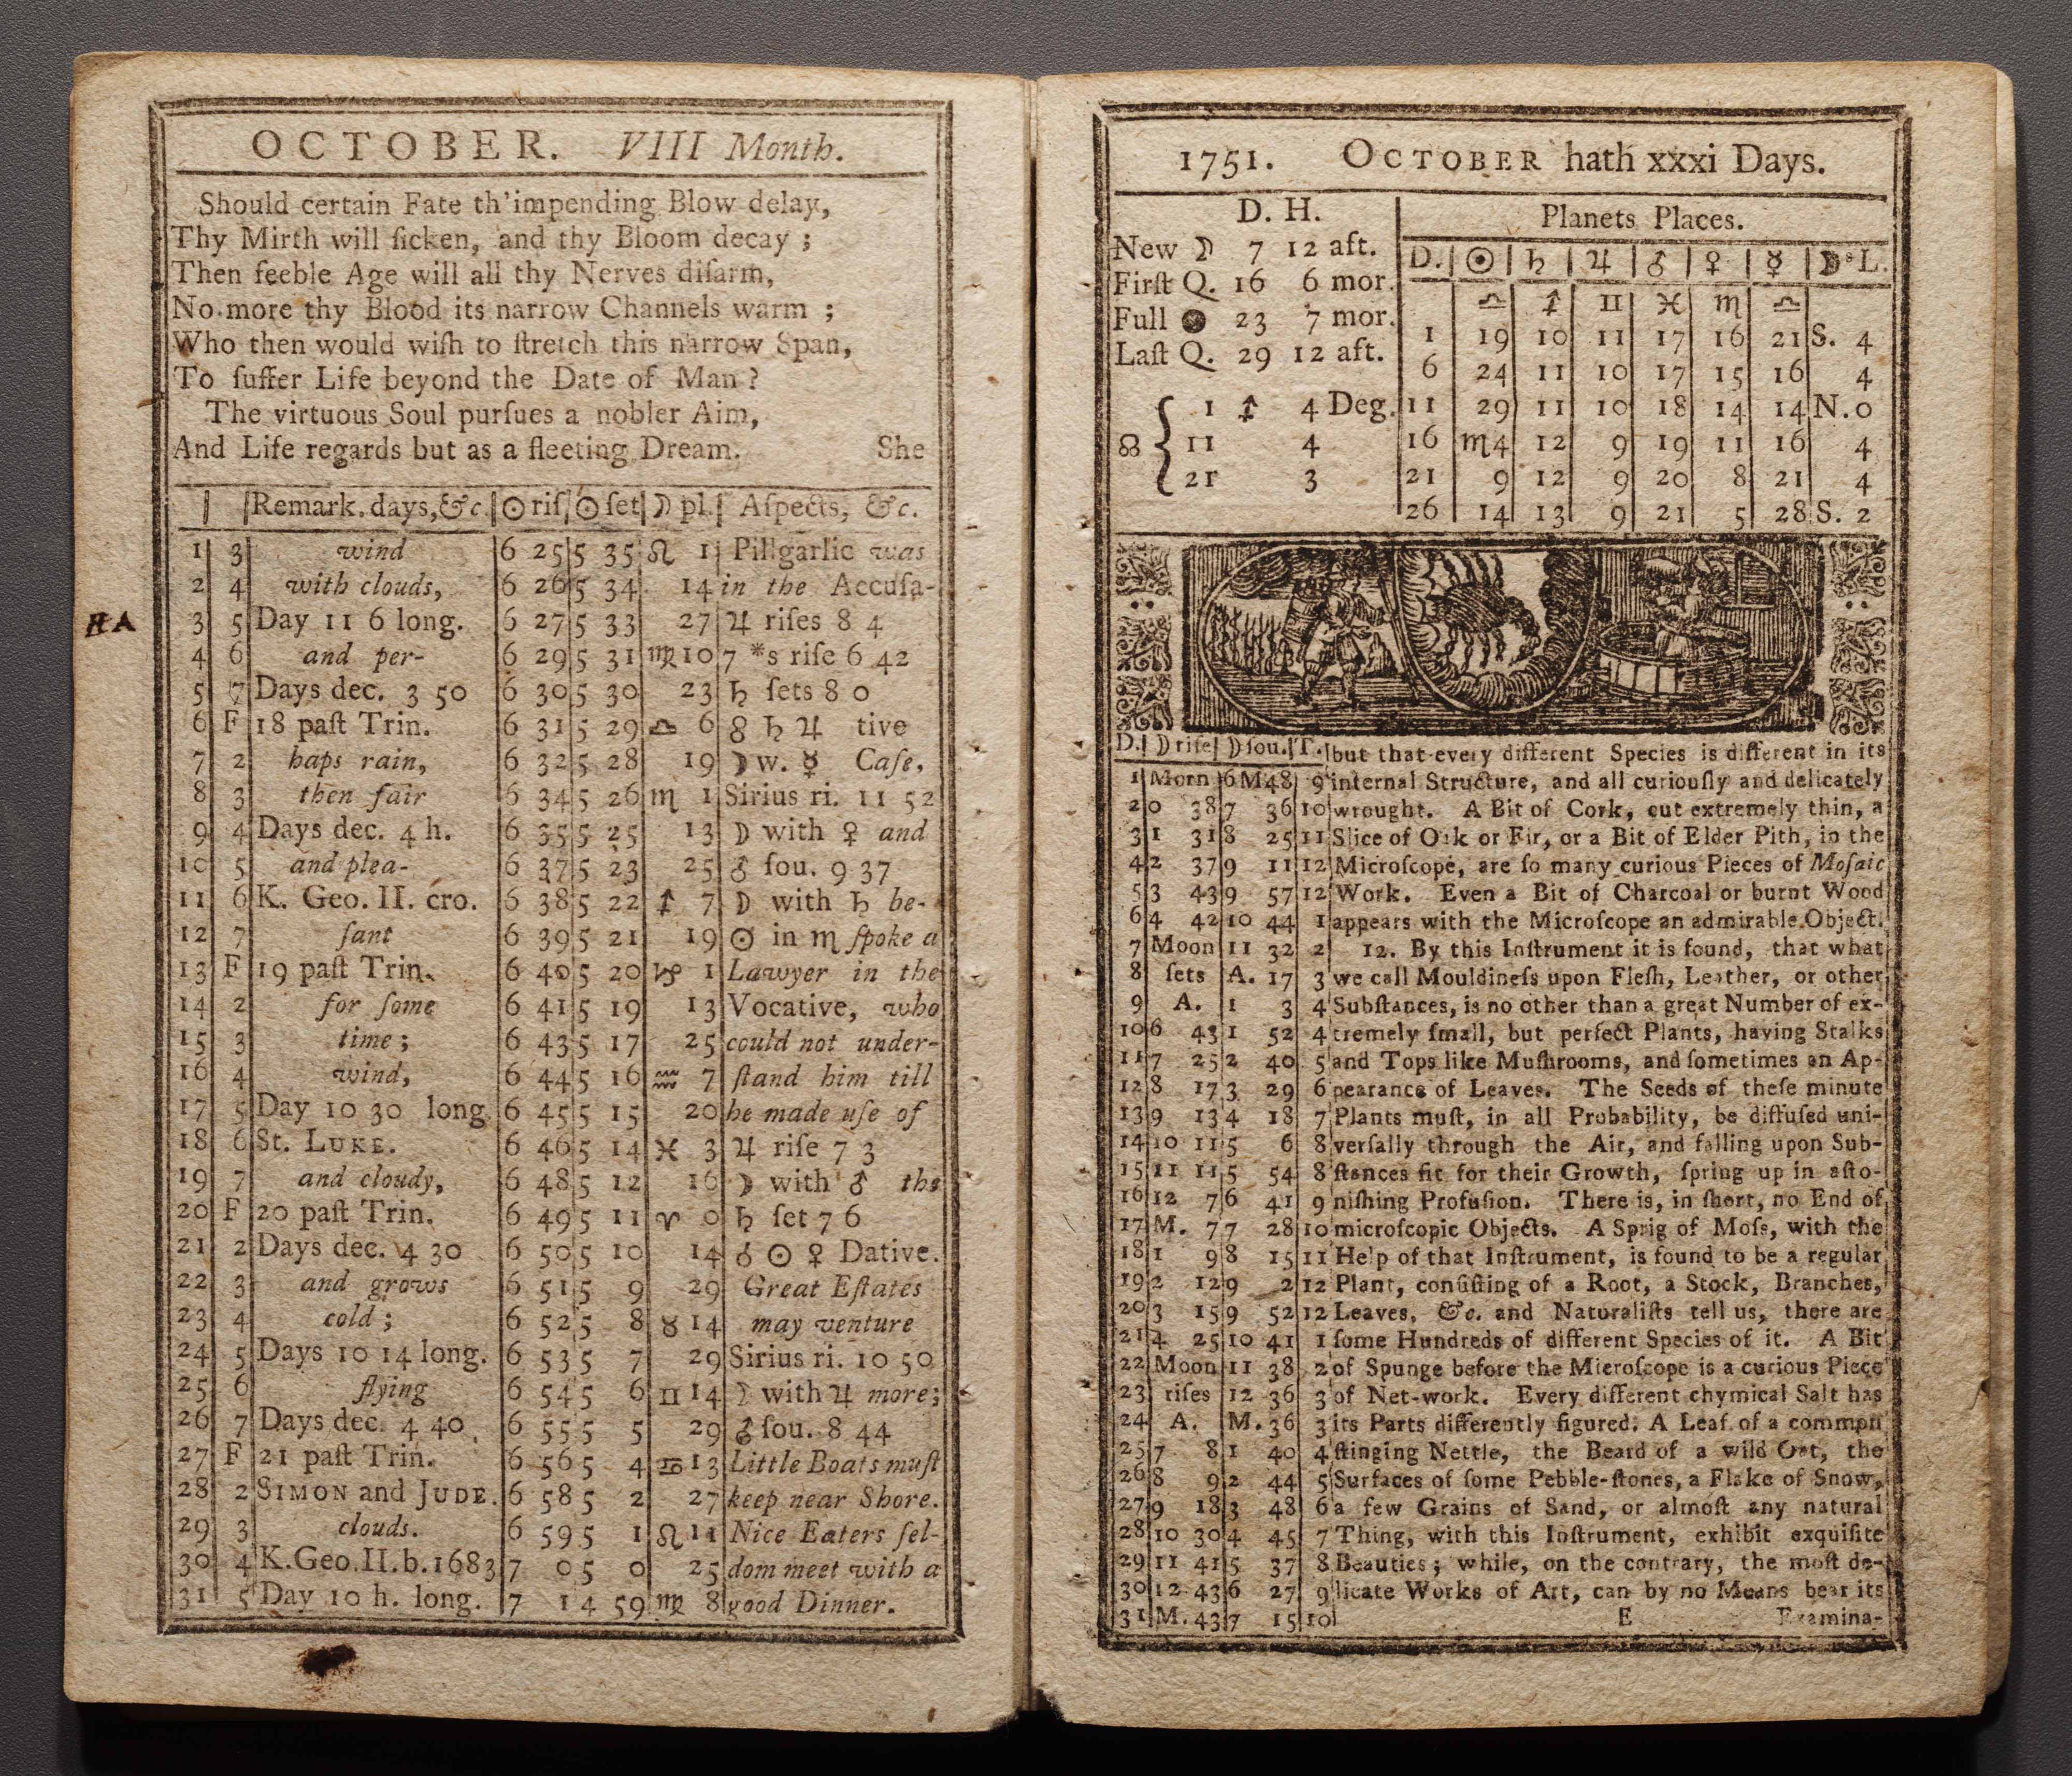 OCTOBER. VIII Month.
Should certain Fate th'impending Blow delay,
Thy Mirth will ſicken, and thy Bloom decay ;
Then feeble Age will all thy Nerves diſarm,
No more thy Blood its narrow Channels warm ;
Who then would wiſh to ſtretch this narrow Span,
To ſuffer Life beyond the Date of Man ?
The virtuous Soul purſues a nobler Aim,
And Life regards but as a fleeting Dream. She
Remark. days, &c. ☉ riſ ☉ ſet ☽ pl. Aſpects, &c.
1 3 wind 6 25 5 35 ♌ 1 Pillgarlic was
2 4 with clouds, 6 26 5 34 14 in the Accuſa-
HA
3 5 Day 11 6 long. 6 27 5 33 27 ♃ riſes 8 4
4 6 and per- 6 29 5 31 ♍ 10 7 *s riſe 6 42
5 7 Days dec. 3 50 6 30 5 30 23 ♄ ſets 8 0
6 F 18 paſt Trin. 6 31 5 29 ♎ 6 ☍ ♄ ♃ tive
7 2 haps rain, 6 32 5 28 19 ☽ w. ☿ Caſe,
8 3 then fair 6 34 5 26 ♏ 1 Sirius ri. 11 52
9 4 Days dec. 4 h. 6 35 5 25 13 ☽ with ♀ and
10 5 and plea- 6 37 5 23 25 ♂ ſou. 9 37
11 6 K. Geo. II. cro. 6 38 5 22 ♐ 7 ☽ with ♄ be-
12 7 ſant 6 39 5 21 19 ☉ in ♏ ſpoke a
13 F 19 paſt Trin. 6 40 5 20 ♑ 1 Lawyer in the
14 2 for ſome 6 41 5 19 13 Vocative, who
15 3 time ; 6 43 5 17 25 could not under-
16 4 wind, 6 44 5 16 ♒ 7 ſtand him till
17 5 Day 10 30 long. 6 45 5 15 20 he made uſe of
18 6 St. LUKE. 6 46 5 14 ♓ 3 ♃ riſe 7 3
19 7 and cloudy, 6 48 5 12 16 ☽ with ♂ the
20 F 20 paſt Trin. 6 49 5 11 ♈ 0 ♄ ſet 7 6
21 2 Days dec. 4 30 6 50 5 10 14 ☌ ☉ ♀ Dative.
22 3 and grows 6 51 5 9 29 Great Eſtates
23 4 cold ; 6 52 5 8 ♉ 14 may venture
24 5 Days 10 14 long. 6 53 5 7 29 Sirius ri. 10 50
25 6 flying 6 54 5 6 ♊ 14 ☽ with ♃ more;
26 7 Days dec. 4 40 6 55 5 5 29 ♂ ſou. 8 44
27 F 21 paſt Trin. 6 56 5 4 ♋ 13 Little Boats muſt
28 2 SIMON and JUDE. 6 58 5 2 27 keep near Shore.
29 3 clouds. 6 59 5 1 ♌ 11 Nice Eaters ſel-
30 4 K.Geo.II.b.1683 7 0 5 0 25 dom meet with a
31 5 Day 10 h. long. 7 1 4 59 ♍ 8 good Dinner.
1751. OCTOBER hath xxxi Days.
D. H.
New ☽ 7 12 aft.
Firſt Q. 16 6 mor.
Full ● 23 7 mor.
Laſt Q. 29 12 aft.
☊ { 1 ♐ 4 Deg.
11 4
21 3
Planets Places.
D. ☉ ♄ ♃ ♂ ♀ ☿ ☽'s L.
♎ ♐ ♊ ♓ ♏ ♎
1 19 10 11 17 16 21 S. 4
6 24 11 10 17 15 16 4
11 29 11 10 18 14 14 N. 0
16 ♏4 12 9 19 11 16 4
21 9 12 9 20 8 21 4
26 14 13 9 21 5 28 S. 2
D. ☽ riſe ☽ ſou. T. but that every different Species is different in its
1 Morn 6 M 48 9 internal Structure, and all curiouſly and delicately
2 0 38 7 36 10 wrought. A Bit of Cork, cut extremely thin, a
3 1 31 8 25 11 Slice of Oak or Fir, or a Bit of Elder Pith, in the
4 2 37 9 11 12 Microſcope, are ſo many curious Pieces of Moſaic
5 3 43 9 57 12 Work. Even a Bit of Charcoal or burnt Wood
6 4 42 10 44 1 appears with the Microſcope an admirable Object.
7 Moon 11 32 2 12. By this Inſtrument it is found, that what
8 ſets A. 17 3 we call Mouldineſs upon Fleſh, Leather, or other
9 A. 1 3 4 Subſtances, is no other than a great Number of ex-
10 6 43 1 52 4 tremely ſmall, but perfect Plants, having Stalks
11 7 25 2 40 5 and Tops like Muſhrooms, and ſometimes an Ap-
12 8 17 3 29 6 pearance of Leaves. The Seeds of theſe minute
13 9 13 4 18 7 Plants muſt, in all Probability, be diffuſed uni-
14 10 11 5 6 8 verſally through the Air, and falling upon Sub-
15 11 11 5 54 8 ſtances fit for their Growth, ſpring up in aſto-
16 12 7 6 41 9 niſhing Profuſion. There is, in ſhort, no End of
17 M. 7 7 28 10 microſcopic Objects. A Sprig of Moſs, with the
18 1 9 8 15 11 Help of that Inſtrument, is found to be a regular
19 2 12 9 2 12 Plant, conſiſting of a Root, a Stock, Branches,
20 3 15 9 52 12 Leaves, &c. and Naturaliſts tell us, there are
21 4 25 10 41 1 ſome Hundreds of different Species of it. A Bit
22 Moon 11 38 2 of Spunge before the Microſcope is a curious Piece
23 riſes 12 36 3 of Net-work. Every different chymical Salt has
24 A. M. 36 3 its Parts differently figured. A Leaf of a common
25 7 8 1 40 4 ſtinging Nettle, the Beard of a wild Oat, the
26 8 9 2 44 5 Surfaces of ſome Pebble-ſtones, a Flake of Snow,
27 9 18 3 48 6 a few Grains of Sand, or almoſt any natural
28 10 30 4 45 7 Thing, with this Inſtrument, exhibit exquiſite
29 11 41 5 37 8 Beauties ; while, on the contrary, the moſt de-
30 12 43 6 27 9 licate Works of Art, can by no Means bear its
31 M. 43 7 15 10 E Examina-